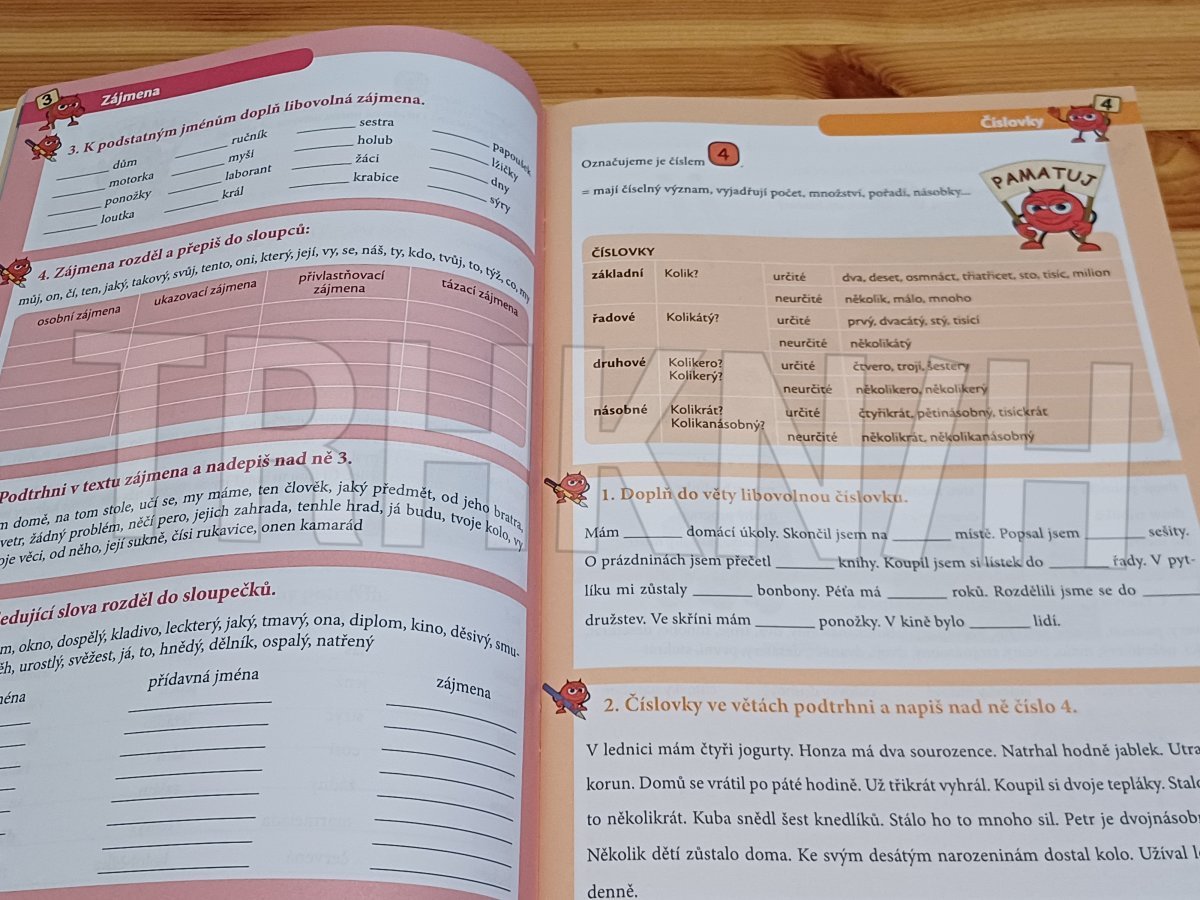 3
Zájmena
3. K podstatným jménům doplň libovolná zájmena.
dům
motorka
ponožky
loutka
ručník
myši
laborant
král
sestra
holub
žáci
krabice
papoušek
lžičky
dny
sýry
4. Zájmena rozděl a přepiš do sloupců:
můj, on, čí, ten, jaký, takový, svůj, tento, oni, který, její, vy, se, náš, ty, kdo, tvůj, to, týž, co, my
osobní zájmena
ukazovací zájmena
přivlastňovací
zájmena
tázací zájmena
Podtrhni v textu zájmena a nadepiš nad ně 3.
domě, na tom stole, učí se, my máme, ten člověk, jaký předmět, od jeho bratra,
žádný problém, něčí pero, jejich zahrada, tenhle hrad, já budu, tvoje kolo, vy
věci, od něho, její sukně, čísi rukavice, onen kamarád
slova rozděl do sloupečků.
okno, dospělý, kladivo, leckterý, jaký, tmavý, ona, diplom, kino, děsivý, smu-
urostlý, svěžest, já, to, hnědý, dělník, ospalý, natřený
přídavná jména
zájmena
4
Číslovky
Označujeme je číslem 4
= mají číselný význam, vyjadřují počet, množství, pořadí, násobky...
PAMATUJ
ČÍSLOVKY
základní Kolik? určité dva, deset, osmnáct, třiatřicet, sto, tisíc, milion
neurčité několik, málo, mnoho
řadové Kolikátý? určité prvý, dvacátý, stý, tisící
neurčité několikátý
druhové Kolikero? určité čtvero, trojí, šestery
Kolikerý?
neurčité několikero, několikerý
násobné Kolikrát? určité čtyřikrát, pětinásobný, tisíckrát
Kolikanásobný?
neurčité několikrát, několikanásobný
1. Doplň do věty libovolnou číslovku.
Mám ________ domácí úkoly. Skončil jsem na ________ místě. Popsal jsem ________ sešity.
O prázdninách jsem přečetl ________ knihy. Koupil jsem si lístek do ________ řady. V pyt-
líku mi zůstaly ________ bonbony. Péťa má ________ roků. Rozdělili jsme se do ________
družstev. Ve skříni mám ________ ponožky. V kině bylo ________ lidí.
2. Číslovky ve větách podtrhni a napiš nad ně číslo 4.
V lednici mám čtyři jogurty. Honza má dva sourozence. Natrhal hodně jablek.
korun. Domů se vrátil po páté hodině. Už třikrát vyhrál. Koupil si dvoje tepláky.
to několikrát. Kuba snědl šest knedlíků. Stálo ho to mnoho sil. Petr je
Několik dětí zůstalo doma. Ke svým desátým narozeninám dostal kolo. Užíval
denně.